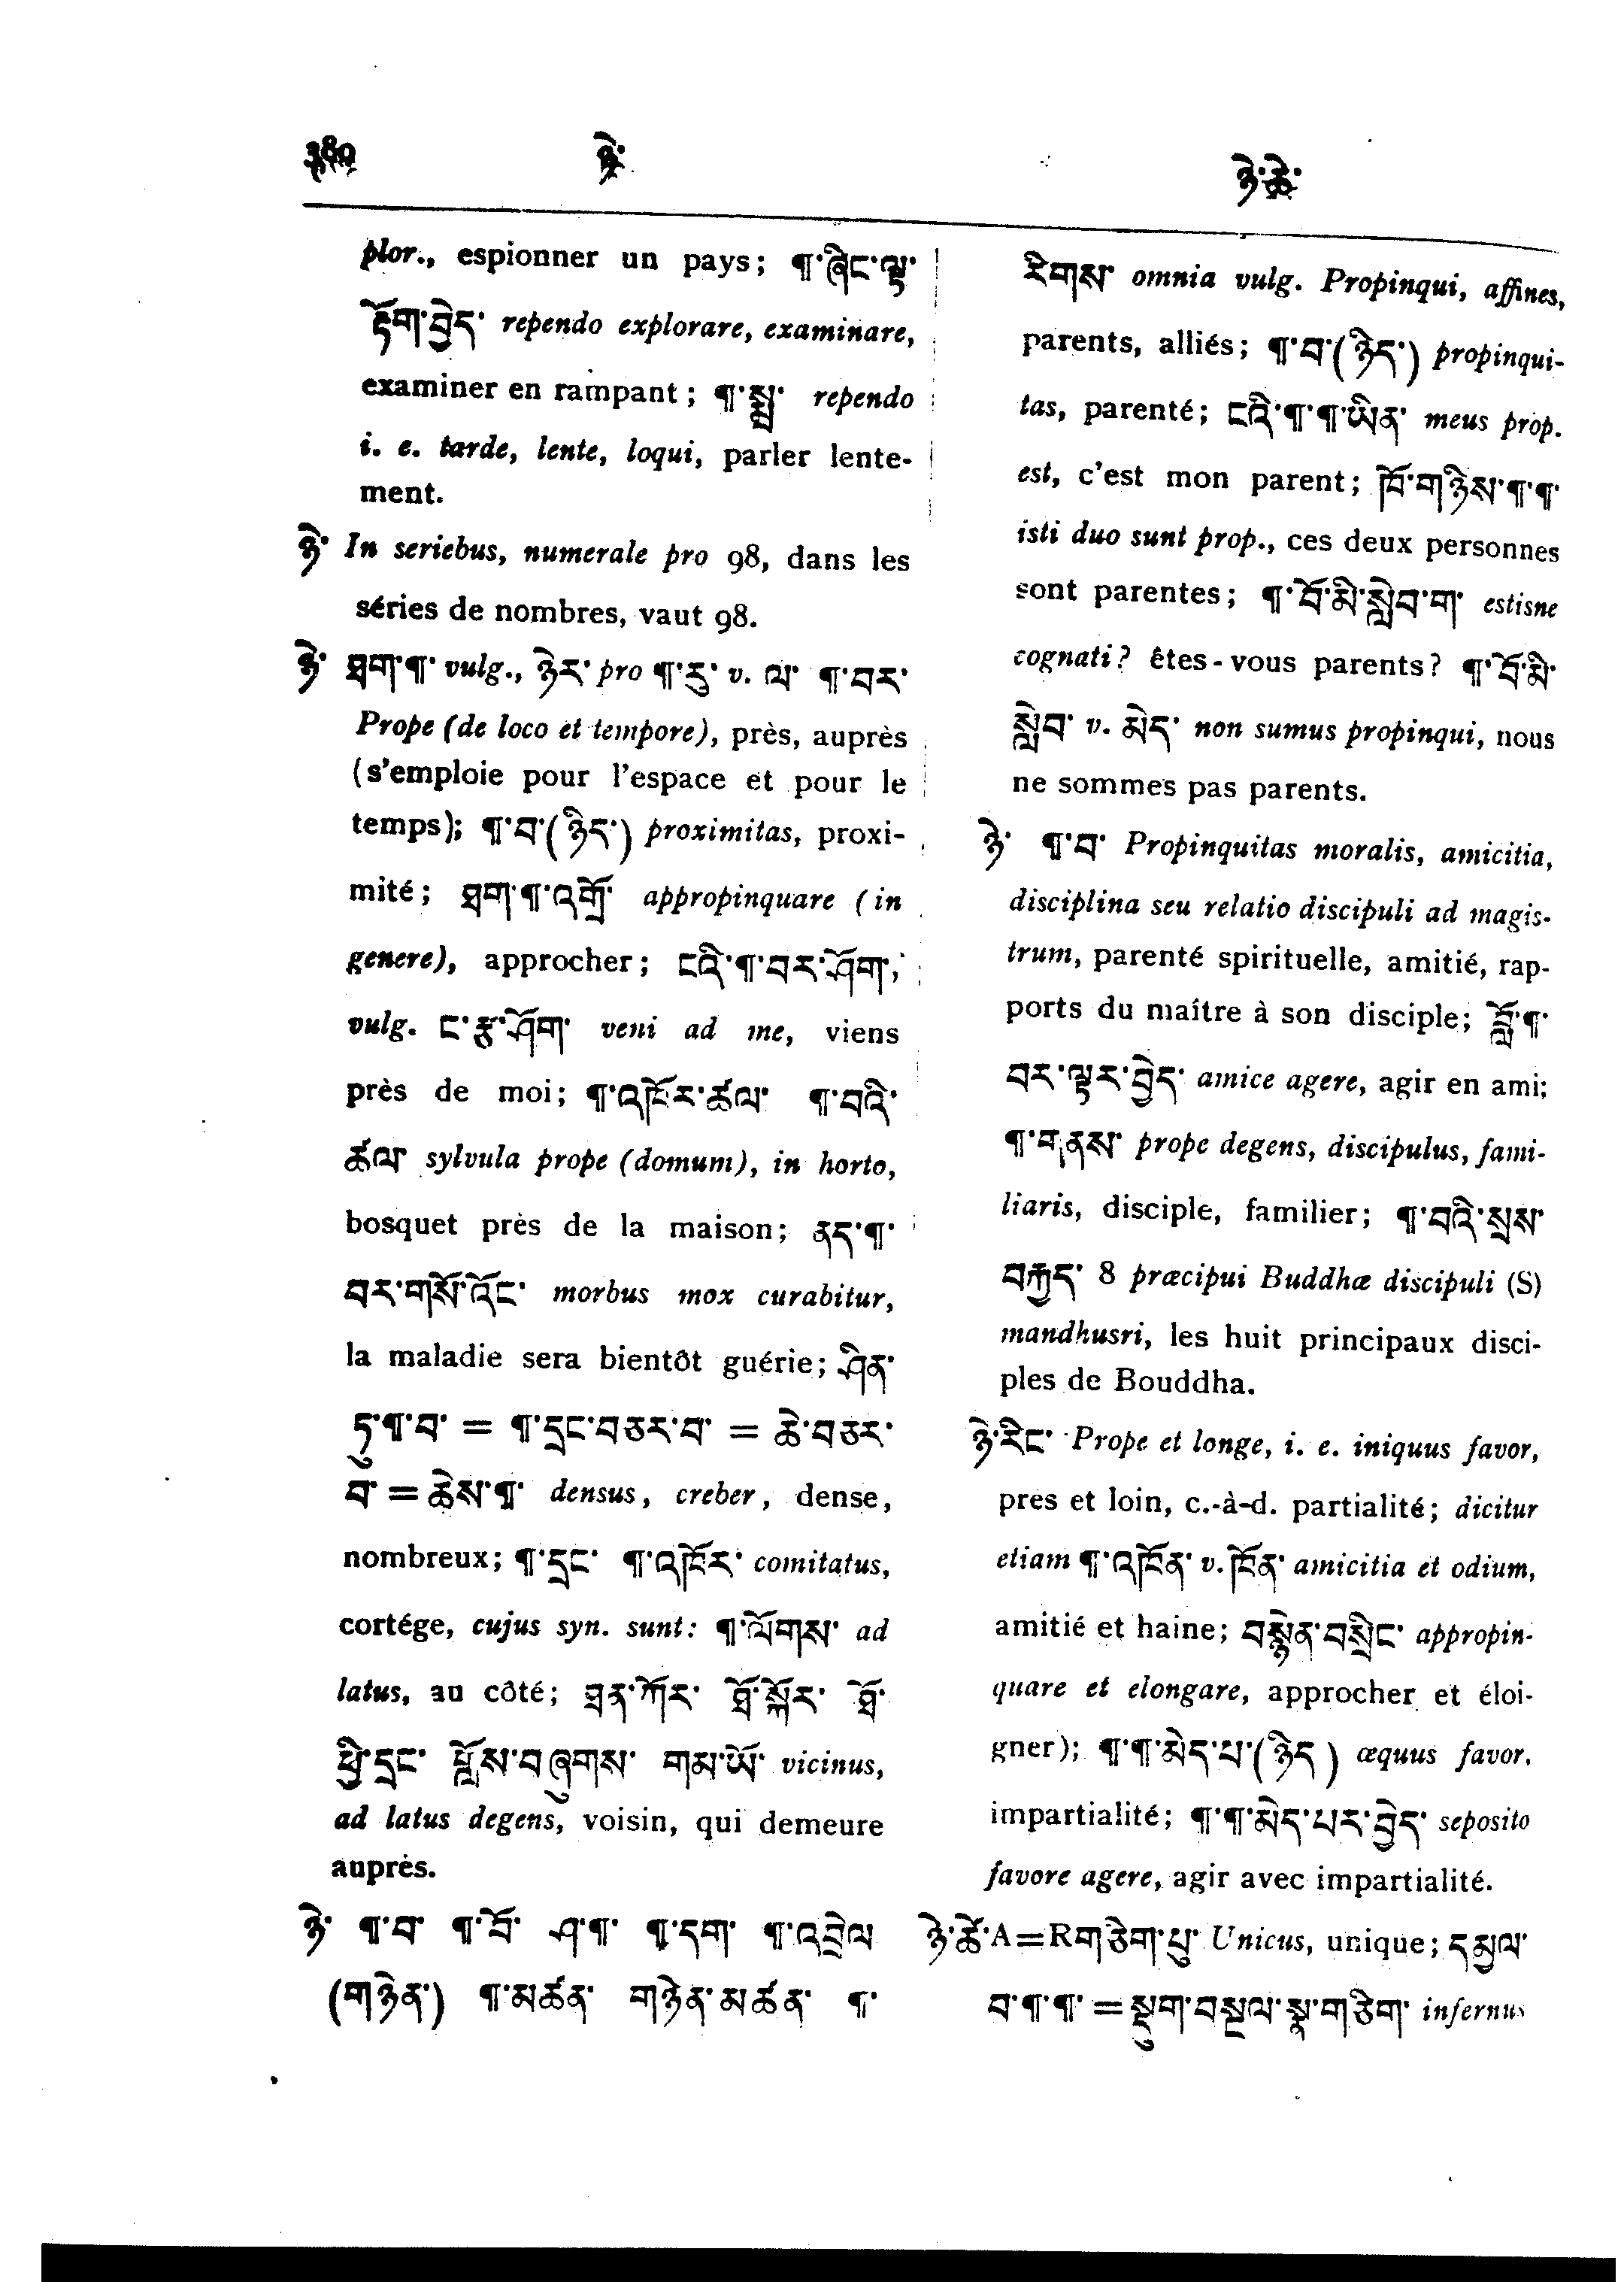 380 ཉེ་ ཉེ་ཚེ་
plor., espionner un pays; ¶་ཞིང་ལྟ་
རྟོག་བྱེད་ rependo explorare, examinare,
examiner en rampant; ¶་སྨྲ་ rependo
i. e. tarde, lente, loqui, parler lente-
ment.
ཉེ་ In seriebus, numerale pro 98, dans les
séries de nombres, vaut 98.
ཉེ་ ཐག་¶་ vulg., ཉེར་ pro ¶་རུ་ v. ལ་ ¶་བར་
Prope (de loco et tempore), près, auprès
(s'emploie pour l'espace et pour le
temps); ¶་བ་(ཉིད་) proximitas, proxi-
mité; ཐག་¶་འགྲོ་ appropinquare (in
genere), approcher; ངའི་¶་བར་ཤོག་,
vulg. ང་རྩ་ཤོག་ veni ad me, viens
près de moi; ¶་འཁོར་ཚལ་ ¶་བའི་
ཚལ་ sylvula prope (domum), in horto,
bosquet près de la maison; ནད་¶་
བར་གསོ་འོང་ morbus mox curabitur,
la maladie sera bientôt guérie; ཤིན་
ཏུ་¶་བ་ = ¶་དྲང་བཅར་བ་ = ཆེ་བཅར་
བ་ = ཆེས་¶་ densus, creber, dense,
nombreux; ¶་དྲང་ ¶་འཁོར་ comitatus,
cortége, cujus syn. sunt: ¶་ལོགས་ ad
latus, au côté; ཐན་ཀོར་ ཐོ་སྐོར་ ཐོ་
ཕྱི་དྲང་ ཕློས་བཞུགས་ གམ་ཡོ་ vicinus,
ad latus degens, voisin, qui demeure
auprès.
ཉེ་ ¶་བ་ ¶་བོ་ ཤ་¶་ ¶་དག་ ¶་འབྲེལ
(གཉེན་) ¶་མཚན་ གཉེན་མཚན་ ¶་
རིགས་ omnia vulg. Propinqui, affines,
parents, alliés; ¶་བ་(ཉིད་) propinqui-
tas, parenté; ངའི་¶་¶་ཡིན་ meus prop.
est, c'est mon parent; ཁོ་གཉིས་¶་¶་
isti duo sunt prop., ces deux personnes
sont parentes; ¶་བོ་མི་སླེབ་ག་ estisne
cognati? êtes-vous parents? ¶་བོ་མི་
སླེབ་ v. མེད་ non sumus propinqui, nous
ne sommes pas parents.
ཉེ་ ¶་བ་ Propinquitas moralis, amicitia,
disciplina seu relatio discipuli ad magis-
trum, parenté spirituelle, amitié, rap-
ports du maître à son disciple; བློ་¶་
བར་ལྟར་བྱེད་ amice agere, agir en ami;
¶་གནས་ prope degens, discipulus, fami-
liaris, disciple, familier; ¶་བའི་སྲས་
བརྐྱད་ 8 præcipui Buddhæ discipuli (S)
mandhusri, les huit principaux disci-
ples de Bouddha.
ཉེ་རིང་ Prope et longe, i. e. iniquus favor,
pres et loin, c.-à-d. partialité; dicitur
etiam ¶་འཁོན་ v. ཁོན་ amicitia et odium,
amitié et haine; བསྙེན་བསྲིང་ appropin-
quare et elongare, approcher et éloi-
gner); ¶་¶་མེད་པ་(ཉིད) æquus favor,
impartialité; ¶་¶་མེད་པར་བྱེད་ seposito
favore agere, agir avec impartialité.
ཉེ་ཚེ་ A=R གཅིག་པུ་ Unicus, unique; དམྱལ་
བ་¶་¶་ = སྡུག་བསྔལ་སྣ་གཅིག་ infernus